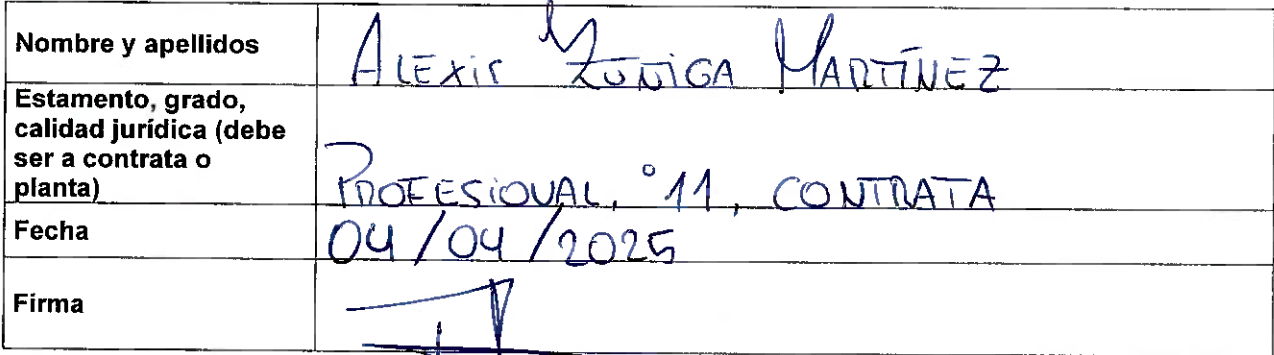 Nombre y apellidos
ALEXiS ZUÑiGA MARTÍNEZ
Estamento, grado,
calidad jurídica (debe
ser a contrata o
planta)
PROFESiONAL, °11, CONTRATA
Fecha
04/04/2025
Firma